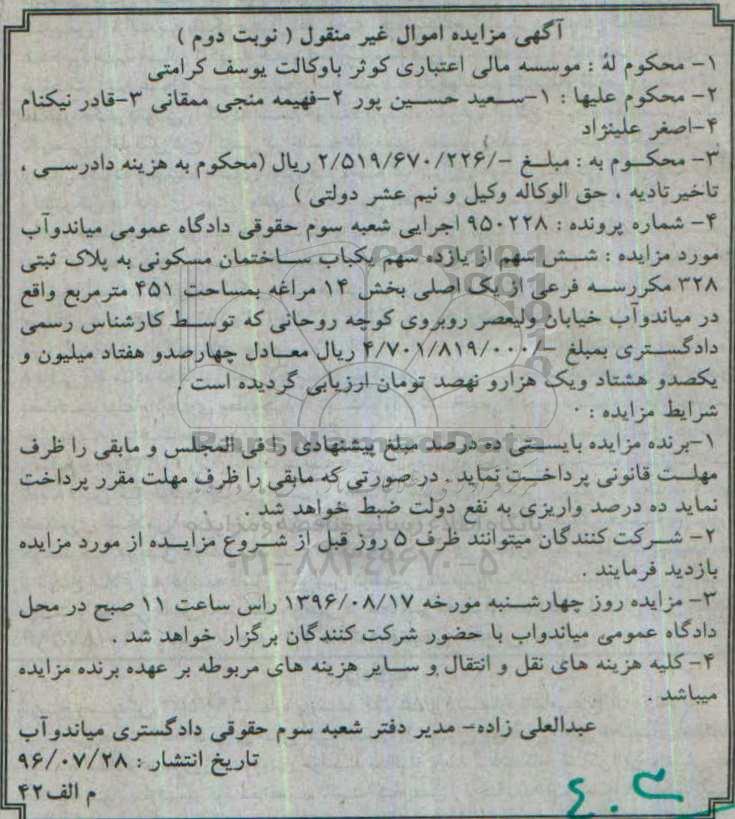 آگهی مزایده اموال غیر منقول ( نوبت دوم )
۱- محکوم لهٔ : موسسه مالی اعتباری کوثر باوکالت یوسف کرامتی
۲- محکوم علیها : ۱-سعید حسین پور ۲-فهیمه منجی ممقانی ۳-قادر نیکنام
۴-اصغر علینژاد
۳- محکوم به : مبلغ -/۲/۵۱۹/۶۷۰/۲۲۶ ریال (محکوم به هزینه دادرسی ،
تاخیرتادیه ، حق الوکاله وکیل و نیم عشر دولتی )
۴- شماره پرونده : ۹۵۰۲۲۸ اجرایی شعبه سوم حقوقی دادگاه عمومی میاندوآب
مورد مزایده : شش سهم از یازده سهم یکباب ساختمان مسکونی به پلاک ثبتی
۳۲۸ مکررسه فرعی از یک اصلی بخش ۱۴ مراغه بمساحت ۴۵۱ مترمربع واقع
در میاندوآب خیابان ولیعصر روبروی کوچه روحانی که توسط کارشناس رسمی
دادگستری بمبلغ -/۴/۷۰۱/۸۱۹/۰۰۰ ریال معادل چهارصدو هفتاد میلیون و
یکصدو هشتاد ویک هزارو نهصد تومان ارزیابی گردیده است .
شرایط مزایده :
ParsNamadData
۱-برنده مزایده بایستی ده درصد مبلغ پیشنهادی را فی المجلس و مابقی را ظرف
مهلت قانونی پرداخت نماید . در صورتی که مابقی را ظرف مهلت مقرر پرداخت
نماید ده درصد واریزی به نفع دولت ضبط خواهد شد .
۲- شرکت کنندگان میتوانند ظرف ۵ روز قبل از شروع مزایده از مورد مزایده
بازدید فرمایند .
۰۲۱-۸۸۳۴۹۶۷۰-۵
۳- مزایده روز چهارشنبه مورخه ۱۳۹۶/۰۸/۱۷ راس ساعت ۱۱ صبح در محل
دادگاه عمومی میاندواب با حضور شرکت کنندگان برگزار خواهد شد .
۴- کلیه هزینه های نقل و انتقال و سایر هزینه های مربوطه بر عهده برنده مزایده
میباشد .
عبدالعلی زاده- مدیر دفتر شعبه سوم حقوقی دادگستری میاندوآب
تاریخ انتشار : ۹۶/۰۷/۲۸
م الف۴۲